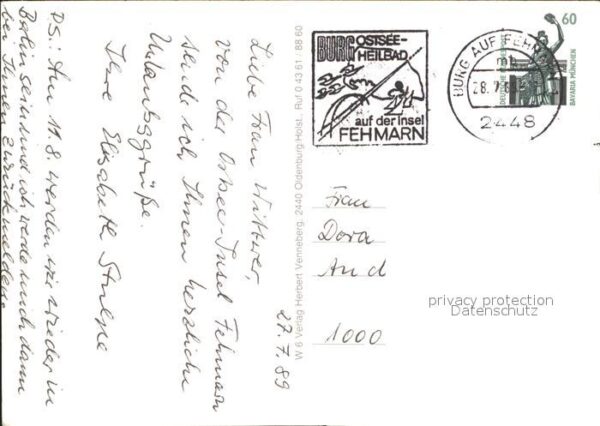 27.7.89
Liebe Frau Wittwer,
von der Ostsee-Insel Fehmarn
sende ich Ihnen herzliche
Urlaubsgrüße.
Ihre Elisabeth
P.S.: Am 11.8. werden wir wieder in
Berlin sein und ich werde mich dann
bei Ihnen zurückmelden.
W 6 Verlag Herbert Venneberg, 2440 Oldenburg/Holst., Ruf 0 43 61 / 88 60
BURG OSTSEE-
HEILBAD
auf der Insel
FEHMARN
BURG AUF FEHMARN
28.7.
2448
60
BAVARIA MÜNCHEN
Frau
Dora
And
1000
privacy protection
Datenschutz